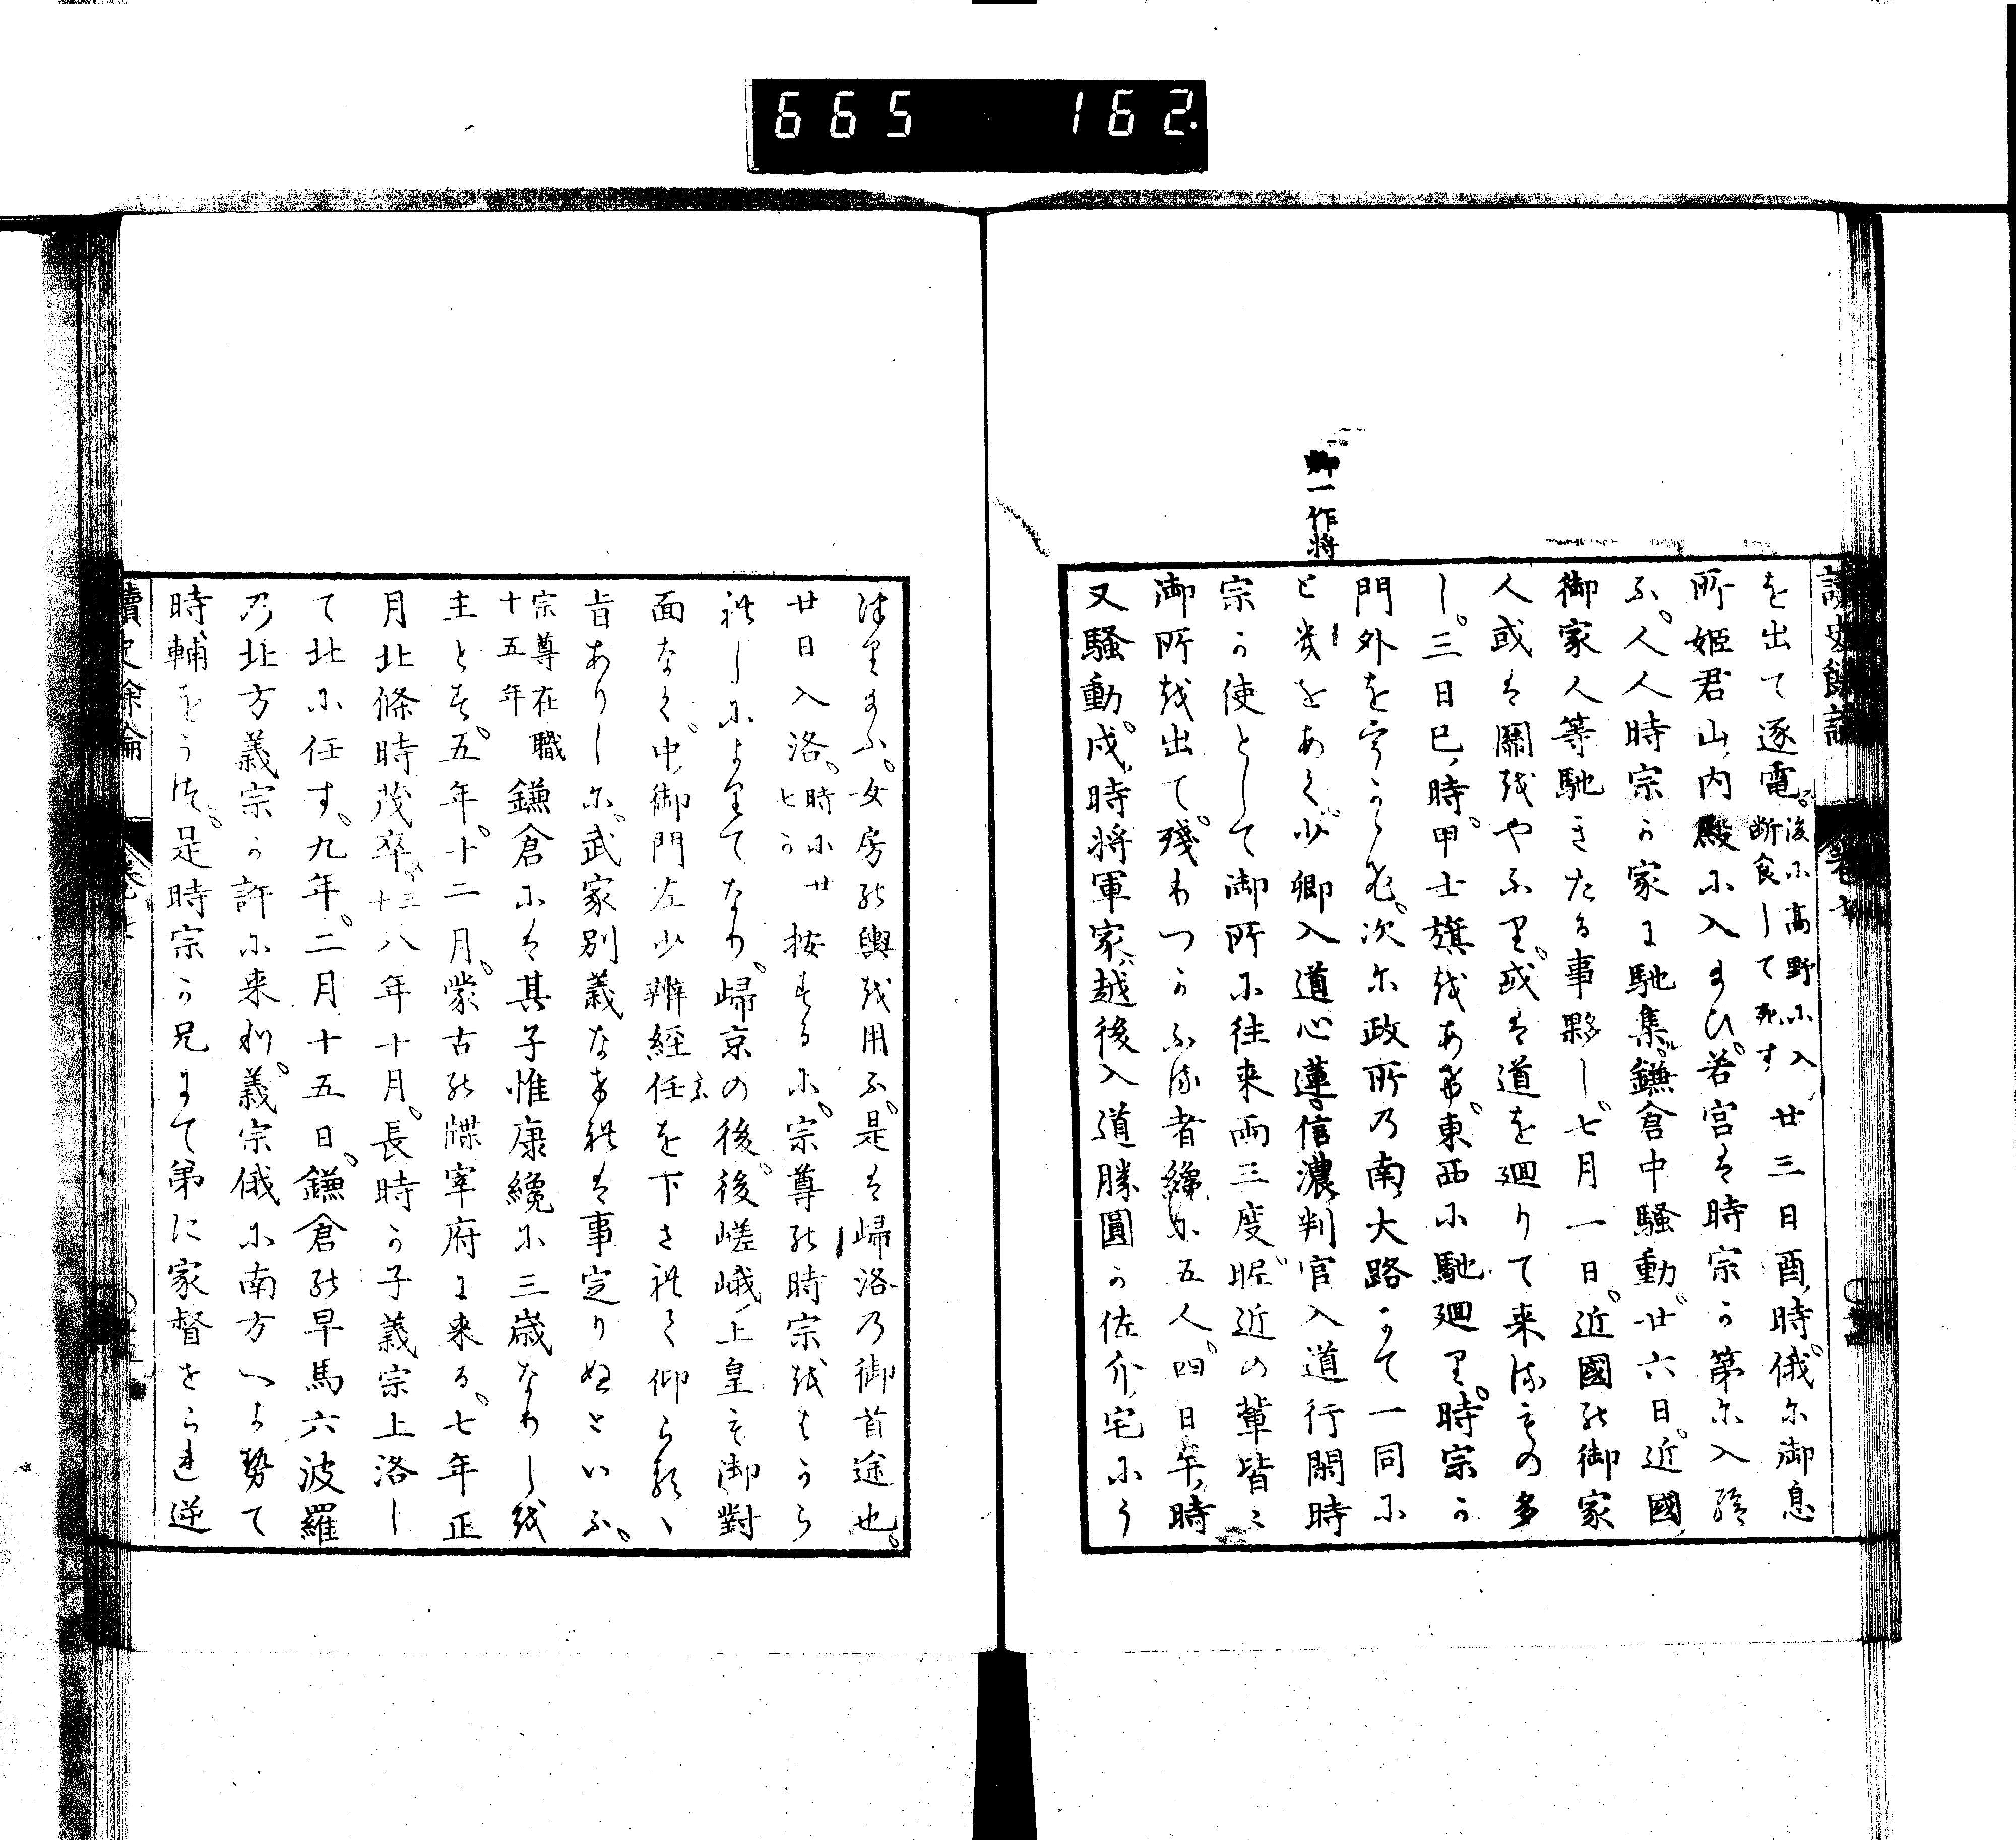 665 162
讀史餘論 巻七
を出て逐電。後に高野に入、断食して死す 廿三日酉時。俄に御息
所姫君山内殿に入ます。若宮は時宗か第に入給
ふ。人人時宗か家に馳集。鎌倉中騒動。廿六日。近國
御家人等馳きたる事夥し。七月一日。近國の御家
人或は關をやふり。或は道を廻りて来るもの多
し。三日巳時。甲士旗をあけ。東西に馳廻り。時宗か
門外を
次に政所の南大路にて一同に
ときをあく。少卿入道心蓮。信濃判官入道行間時
宗か使として御所に往来両三度。昵近の輩皆々
御所を出て。残りつかふる者纔に五人。四日午時
又騒動。戌時将軍家越後入道勝圓か佐介宅にう
卿一作将
つります。女房の輿を用ふ。是は歸洛の御首途也。
廿日入洛。時に廿七か 按するに。宗尊の時宗をはから
れしによりてなり。歸京の後。後嵯峨上皇も御對
面なく。中御門左少辨経任を下され仰らるゝ
旨ありしに。武家別義なけれは事定りぬといふ。
宗尊在職十五年 鎌倉には其子惟康纔に三歳なりしを
主とす。五年。十二月。蒙古の牒宰府に来る。七年正
月北條時茂卒。三十 八年十月。長時か子義宗上洛し
て北に任す。九年。二月十五日。鎌倉の早馬六波羅
の北方義宗か許に来れり。義宗俄に南方へよせて
時輔をうつ。是時宗か兄にて弟に家督をられ逆
讀史餘論 巻七